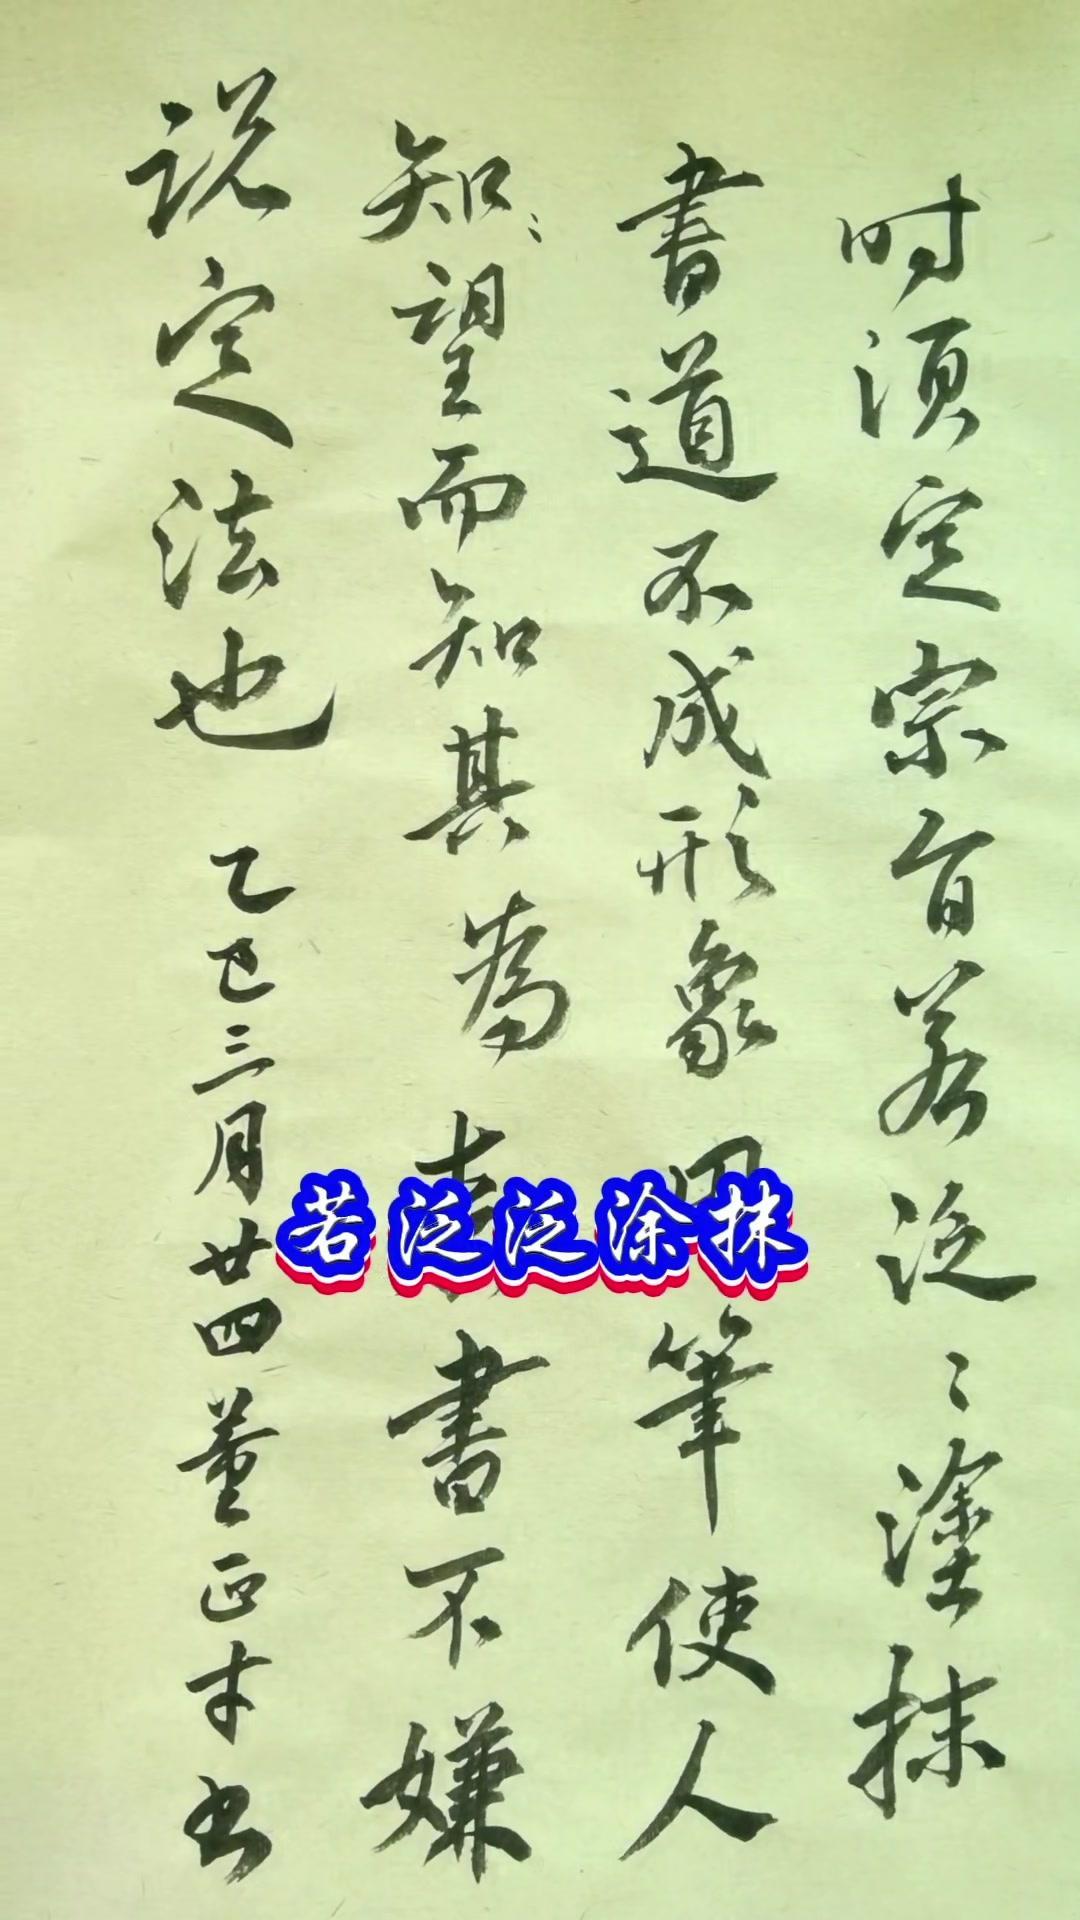 时须定宗旨若泛〻塗抹
書道不成形象用筆使人
知〻望而知其為書不嫌
说定法也 乙巳三月廿四董正才书
若泛泛涂抹